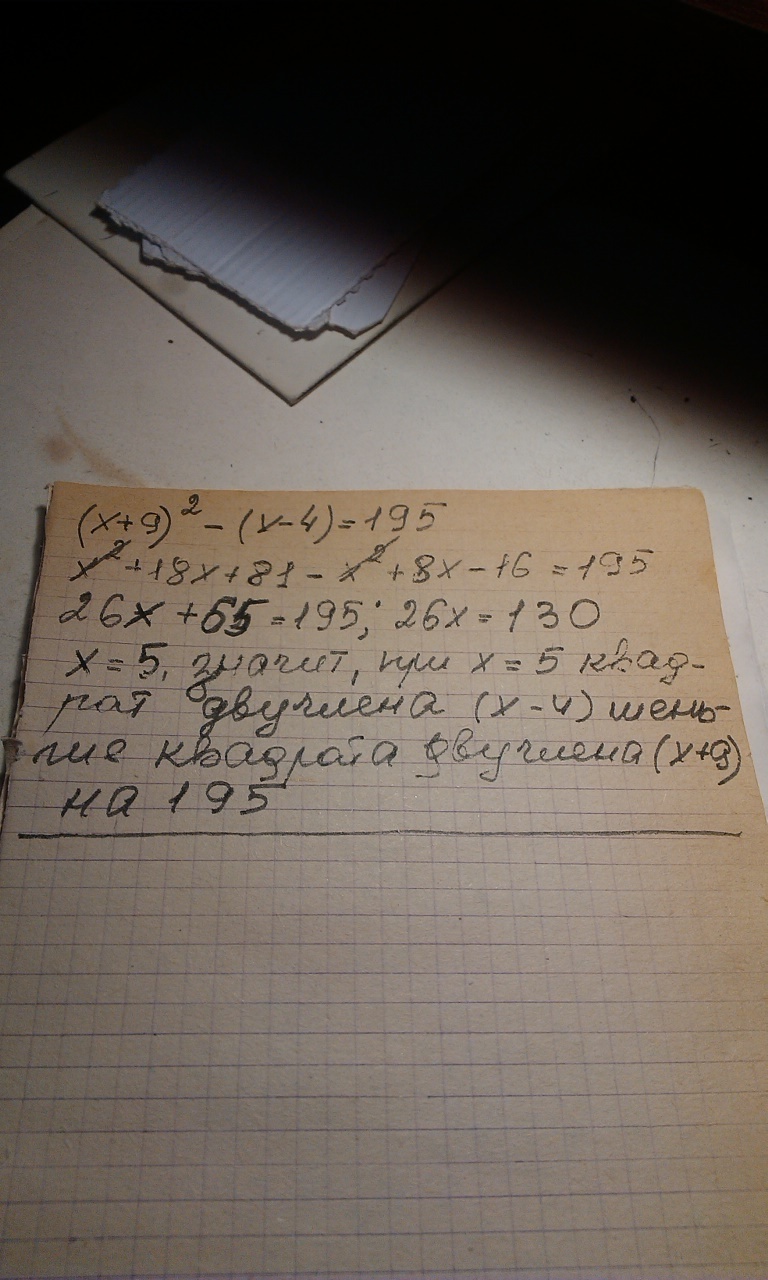 (x+9)² - (x-4) = 195
x² + 18x + 81 - x² + 8x - 16 = 195
26x + 65 = 195; 26x = 130
x = 5, значит, при x = 5 квад-
рат двучлена (x-4) мень-
ше квадрата двучлена (x+9)
на 195